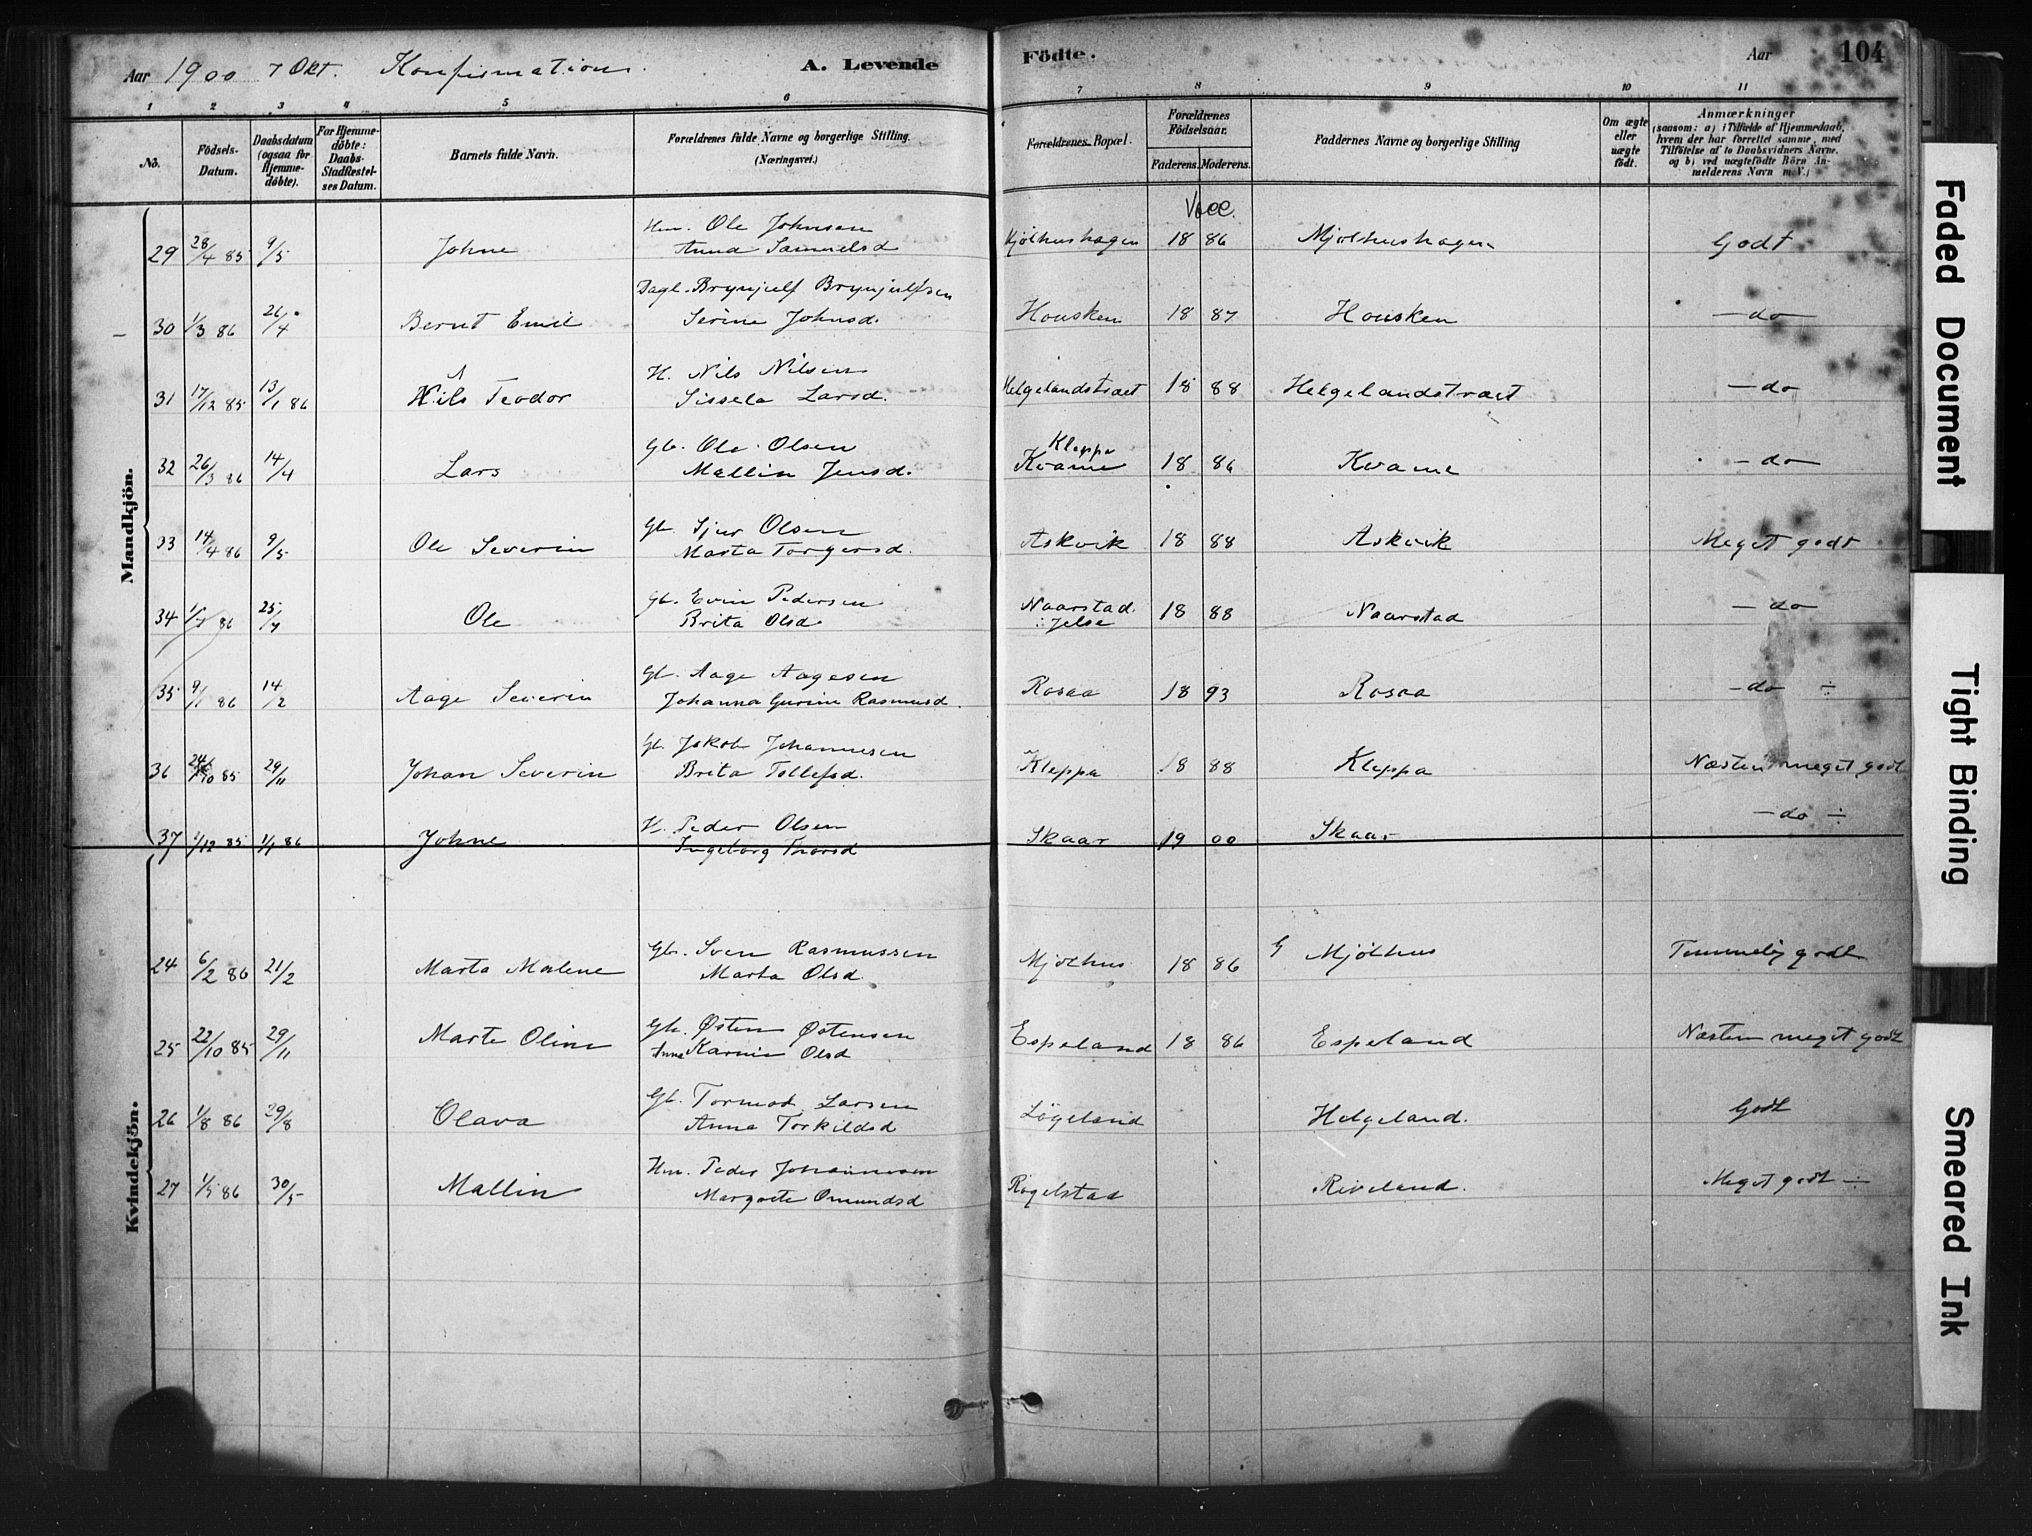 Aar 1900 7 Okt. Konfirmation. A. Levende Födte. Aar 104
1 2 3 4 5 6 7 8 9 10 11
No. Födsels-Datum. Daabsdatum (ogsaa for Hjemmedöbte). For Hjemmedöbte: Daabs-Stadfæstelses Datum. Barnets fulde Navn. Forældrenes fulde Navne og borgerlige Stilling. (Næringsvei.) Forældrenes Bopæl. Forældrenes Födselsaar. Faderens. Moderens. Faddernes Navne og borgerlige Stilling Om ægte eller uægte födt. Anmærkninger (saasom: a) i Tilfælde af Hjemmedaab, hvem der har forrettet samme, med Tilföielse af to Daabsvidners Navne. og b) ved uægtefödte Börn Anmelderens Navn m. V.)
Vacc.
Mandkjön.
29 28/4 85 9/5 Johne Hm. Ole Johnsen Mjølhushagen 18 86 Mjølhushagen Godt
Anna Samuelsd
30 1/3 86 26/4 Bernt Emil Dagl. Brynjulf Brynjulfsen Housken 18 87 Housken - do
Serine Johnsd.
31 17/12 85 13/1 86 Nils Teodor H. Nils Nilsen Helgelandstræet 18 88 Helgelandstræet - do
Sissela Larsd.
32 26/3 86 14/4 Lars Gb. Ole Olsen Kleppa Kvame 18 86 Kvame - do
Mallin Jensd.
33 14/4 86 9/5 Ole Severin Gb. Sjur Olsen Askvik 18 88 Askvik Meget godt
Marta Torgersd.
34 86 25/7 Ole Gb. Evin Pedersen Naarstad 18 88 Naarstad - do
Brita Olsd. i Jelse
35 9/1 86 14/2 Aage Severin Gb. Aage Aagesen Rosaa 18 93 Rosaa - do ÷
Johanna Gurine Rasmusd.
36 24/10 85 29/11 Johan Severin Gb. Jakob Johannesen Kleppa 18 88 Kleppa Næsten meget godt
Brita Tollefsd.
37 1/12 85 1/1 86 Johne H. Peder Olsen Skaar 19 00 Skaar - do ÷
Ingeborg Thorsd
Kvindekjön.
24 6/2 86 21/2 Marta Malene Gb. Sven Rasmussen Mjølhus 18 86 G Mjølhus Temmelig godt
Marta Olsd.
25 22/10 85 29/11 Marte Oline Gb. Østen Østensen Espeland 18 86 Espeland Næsten meget godt
Anna Karine Olsd
26 1/8 86 29/8 Olava Gb. Tormod Larsen Løgeland Helgeland. Godt
Anna Torkildsd
27 1/5 86 30/5 Mallin Hm. Peder Johannesen Rogelstad Riveland. Meget godt ÷
Margrete Omundsd
Faded Document
Tight Binding
Smeared Ink